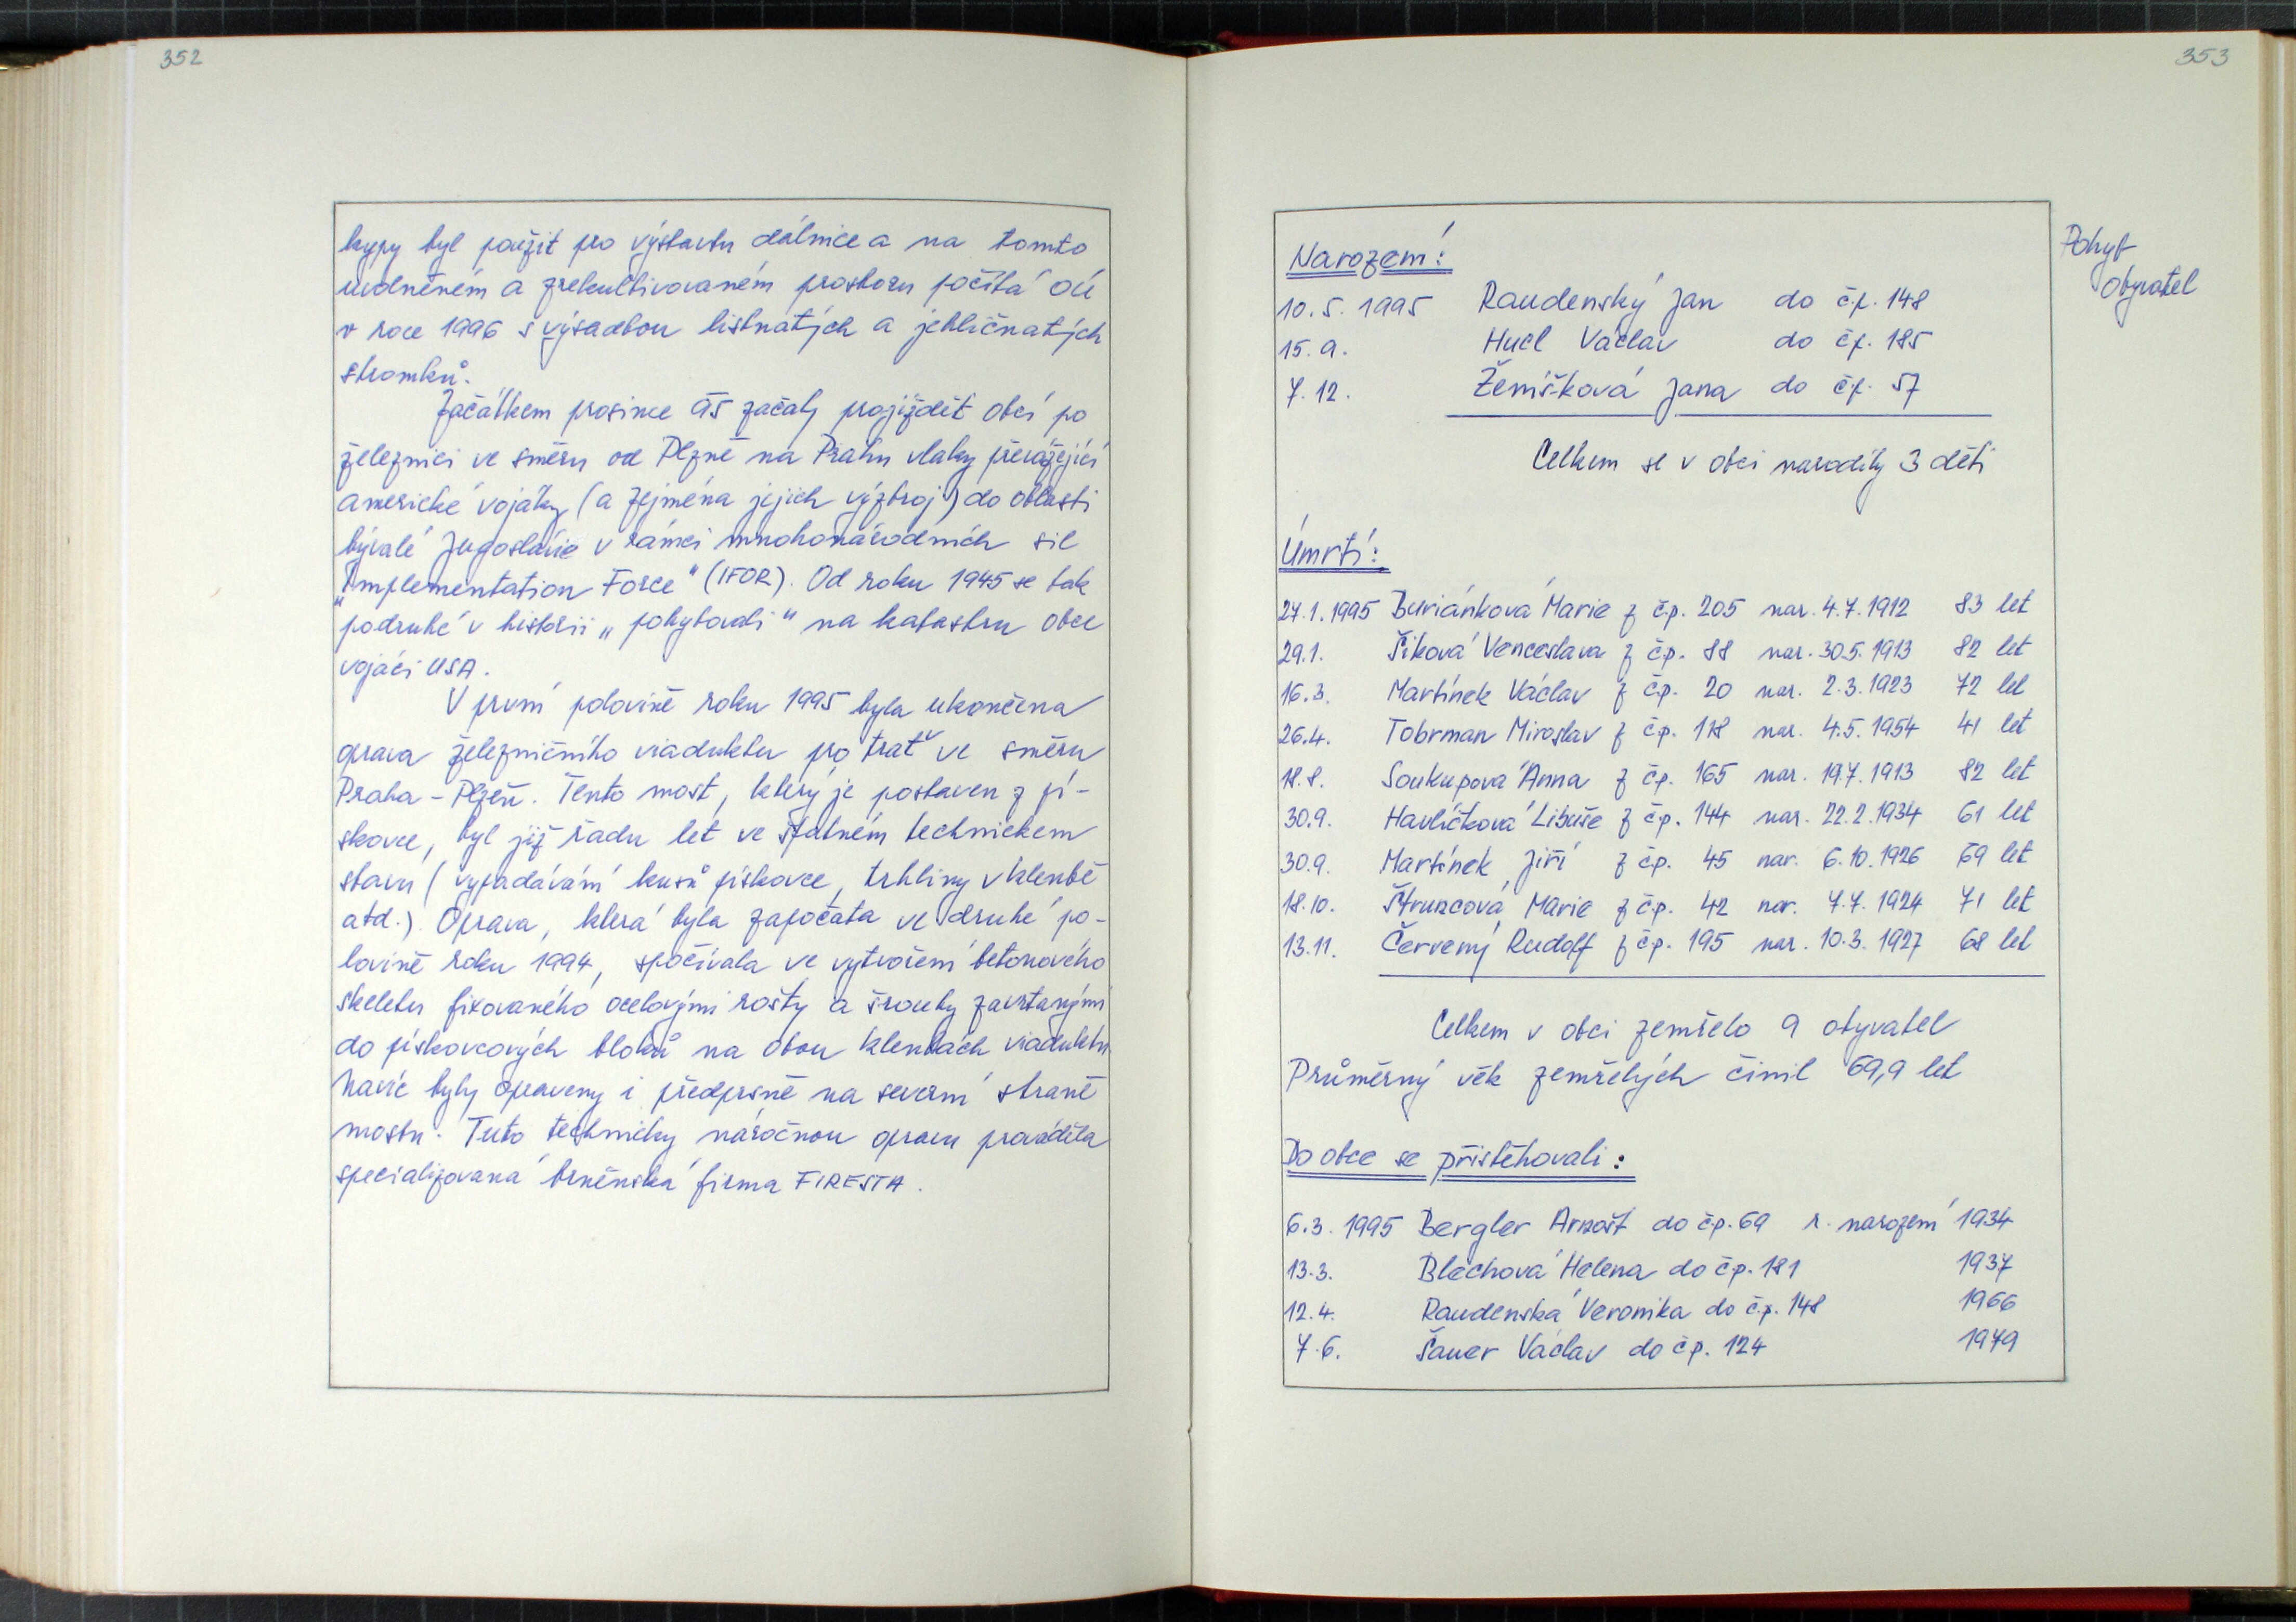 352
kypy byl použit pro výstavbu dálnice a na tomto
uvolněném a zrekultivovaném prostoru počítá OÚ
v roce 1996 s výsadbou listnatých a jehličnatých
stromků.
Začátkem prosince čs začaly projíždět obcí po
železnici ve směru od Plzně na Prahu vlaky převážející
americké vojáky (a zejména jejich výzbroj) do oblasti
bývalé Jugoslávie v rámci mnohonárodních sil
„Implementation Force" (IFOR). Od roku 1945 se tak
podruhé v historii „pohybovali" na katastru obce
vojáci USA.
V první polovině roku 1995 byla ukončena
oprava železničního viaduktu pro trať ve směru
Praha - Plzeň. Tento most, který je postaven z pí-
skovce, byl již řadu let ve špatném technickém
stavu (vypadávání kusů pískovce, trhliny v klenbě
atd.). Oprava, která byla započata ve druhé po-
lovině roku 1994, spočívala ve vytvoření betonového
skeletu fixovaného ocelovými rošty a šrouby zavrtanými
do pískovcových bloků na obou klenbách viaduktu
Navíc byly opraveny i předprsně na severní straně
mostu. Tuto technicky náročnou opravu prováděla
specializovaná brněnská firma FIRESTA.
353
Pohyb
obyvatel
Narození:
10. 5. 1995 Raudenský Jan do č.p. 148
15. 9. Hucl Václav do č.p. 185
7. 12. Ženíšková Jana do č.p. 57
Celkem se v obci narodily 3 děti
Úmrtí:
27.1.1995 Buriánková Marie z čp. 205 nar. 4.7.1912 83 let
29.1. Šiková Venceslava z čp. 88 nar. 30.5.1913 82 let
16.3. Martínek Václav z čp. 20 nar. 2.3.1923 72 let
26.4. Tobrman Miroslav z čp. 118 nar. 4.5.1954 41 let
18.8. Soukupová Anna z čp. 165 nar. 19.7.1913 82 let
30.9. Havlíčková Libuše z čp. 144 nar. 22.2.1934 61 let
30.9. Martínek Jiří z čp. 45 nar. 6.10.1926 69 let
18.10. Štruncová Marie z čp. 42 nar. 7.7.1924 71 let
13.11. Červený Rudolf z čp. 195 nar. 10.3.1927 68 let
Celkem v obci zemřelo 9 obyvatel
Průměrný věk zemřelých činil 69,9 let
Do obce se přistěhovali:
6.3.1995 Bergler Arnošt do čp. 69 r. narození 1934
13.3. Blechová Helena do čp. 181 1937
12.4. Raudenská Veronika do č.p. 148 1966
7.6. Šauer Václav do čp. 124 1979